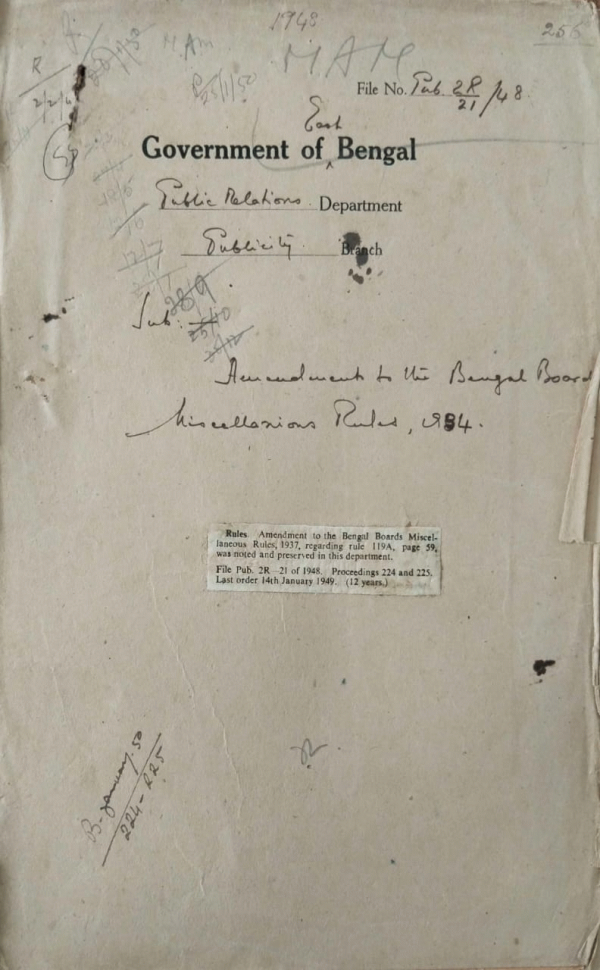 1948
256
MAM
MAM
25/1/50
File No. Pub. 2R/21/48.
East
Government of Bengal
Public Relations Department
Publicity Branch
Sub:
28/9
25/10
Amendment to the Bengal Board
Miscellanious Rules, 1934.
Rules. Amendment to the Bengal Boards Miscel-
laneous Rules, 1937, regarding rule 119A, page 59,
was noted and preserved in this department.
File Pub. 2R—21 of 1948. Proceedings 224 and 225.
Last order 14th January 1949. (12 years.)
B-January 50
224-225